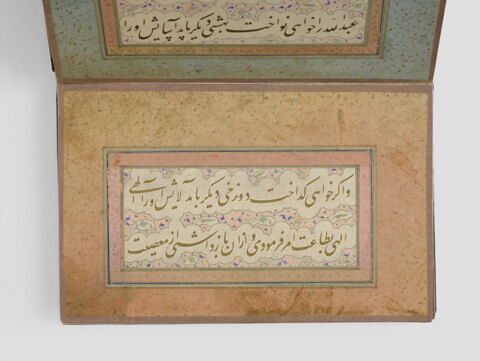 عبدالله را خواهی نواخت بهشتی دیگر باید آسایش او را
واگر خواهی گداخت دوزخی دیگر باید آلایش او را الهی
الهی بطاعت امر فرمودی و ازان بازداشتی از معصیت